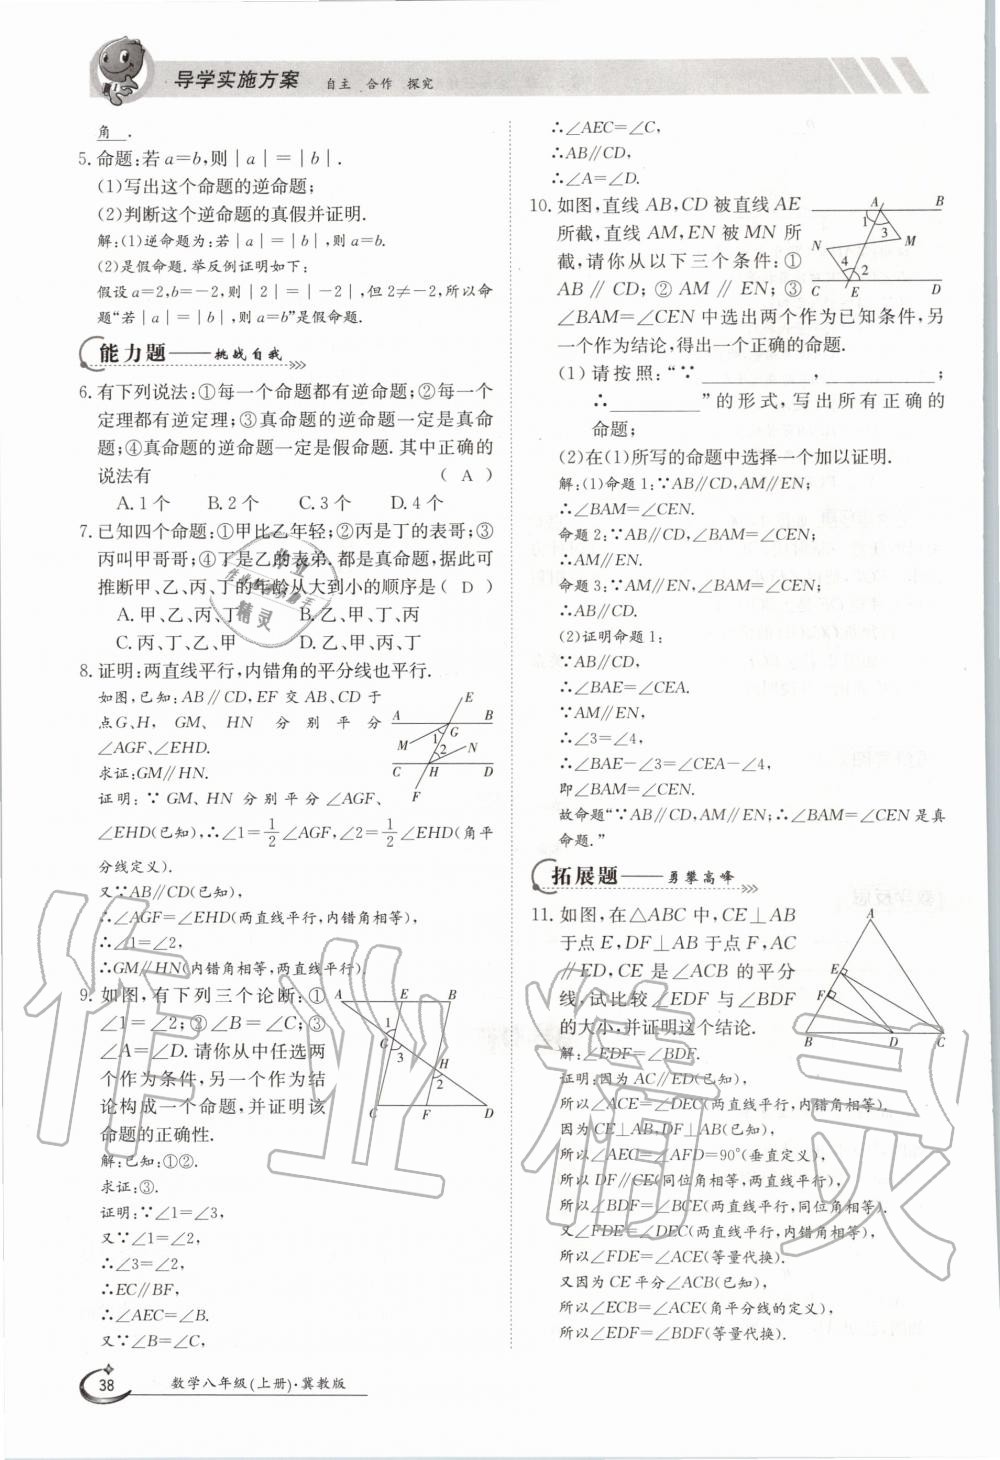 导学实施方案 自主 合作 探究
角 .
5. 命题:若 a=b,则|a|=|b|.
(1)写出这个命题的逆命题;
(2)判断这个逆命题的真假并证明.
解:(1)逆命题为:若|a|=|b|,则 a=b.
(2)是假命题.举反例证明如下:
假设 a=2,b=-2,则|2|=|-2|,但 2≠-2,所以命
题“若|a|=|b|,则 a=b”是假命题.
能力题——挑战自我
6. 有下列说法:①每一个命题都有逆命题;②每一个
定理都有逆定理;③真命题的逆命题一定是真命
题;④真命题的逆命题一定是假命题.其中正确的
说法有 ( A )
A. 1 个 B. 2 个 C. 3 个 D. 4 个
7. 已知四个命题:①甲比乙年轻;②丙是丁的表哥;③
丙叫甲哥哥;④丁是乙的表弟.都是真命题,据此可
推断甲、乙、丙、丁的年龄从大到小的顺序是( D )
A. 甲、乙、丙、丁 B. 乙、甲、丁、丙
C. 丙、丁、乙、甲 D. 乙、甲、丙、丁
8. 证明:两直线平行,内错角的平分线也平行.
如图,已知:AB∥CD,EF 交 AB、CD 于
点G、H, GM、HN 分别平分
∠AGF、∠EHD.
求证:GM∥HN.
证明:∵GM、HN 分别平分∠AGF、
∠EHD(已知),∴∠1=1/2∠AGF,∠2=1/2∠EHD(角平
分线定义).
又∵AB∥CD(已知),
∴∠AGF=∠EHD(两直线平行,内错角相等),
∴∠1=∠2,
∴GM∥HN(内错角相等,两直线平行).
E
A B
G
1
M 2 N
C H D
F
9. 如图,有下列三个论断:①
∠1=∠2;②∠B=∠C;③
∠A=∠D.请你从中任选两
个作为条件,另一个作为结
论构成一个命题,并证明该
命题的正确性.
解:已知:①②.
求证:③.
证明:∵∠1=∠3,
又∵∠1=∠2,
∴∠3=∠2,
∴EC∥BF,
∴∠AEC=∠B.
又∵∠B=∠C,
A E B
1
G 3
H
2
C F D
∴∠AEC=∠C,
∴AB∥CD,
∴∠A=∠D.
10. 如图,直线 AB,CD 被直线 AE
所截,直线 AM,EN 被 MN 所
截,请你从以下三个条件:①
AB∥CD;②AM∥EN;③
∠BAM=∠CEN 中选出两个作为已知条件,另
一个作为结论,得出一个正确的命题.
(1)请按照:“∵ , ;
∴ ”的形式,写出所有正确的
命题;
(2)在(1)所写的命题中选择一个加以证明.
A B
1 3
N M
4 2
C E D
解:(1)命题 1:∵AB∥CD,AM∥EN;
∴∠BAM=∠CEN.
命题 2:∵AB∥CD,∠BAM=∠CEN;
∴AM∥EN.
命题 3:∵AM∥EN,∠BAM=∠CEN;
∴AB∥CD.
(2)证明命题 1:
∵AB∥CD,
∴∠BAE=∠CEA.
∵AM∥EN,
∴∠3=∠4,
∴∠BAE-∠3=∠CEA-∠4,
即∠BAM=∠CEN.
故命题“∵AB∥CD,AM∥EN;∴∠BAM=∠CEN 是真
命题.”
拓展题——勇攀高峰
11. 如图,在△ABC 中,CE⊥AB
于点 E,DF⊥AB 于点 F,AC
∥ED,CE 是∠ACB 的平分
线,试比较∠EDF 与∠BDF
的大小,并证明这个结论.
A
E
F
B D C
解:∠EDF=∠BDF.
证明:因为 AC∥ED(已知),
所以∠ACE=∠DEC(两直线平行,内错角相等).
因为 CE⊥AB,DF⊥AB(已知),
所以∠AEC=∠AFD=90°(垂直定义),
所以 DF∥CE(同位角相等,两直线平行),
所以∠BDF=∠BCE(两直线平行,同位角相等).
又∠FDE=∠DEC(两直线平行,内错角相等),
所以∠FDE=∠ACE(等量代换).
又因为 CE 平分∠ACB(已知),
所以∠ECB=∠ACE(角平分线的定义),
所以∠EDF=∠BDF(等量代换).
作业精灵
38 数学八年级(上册)·冀教版